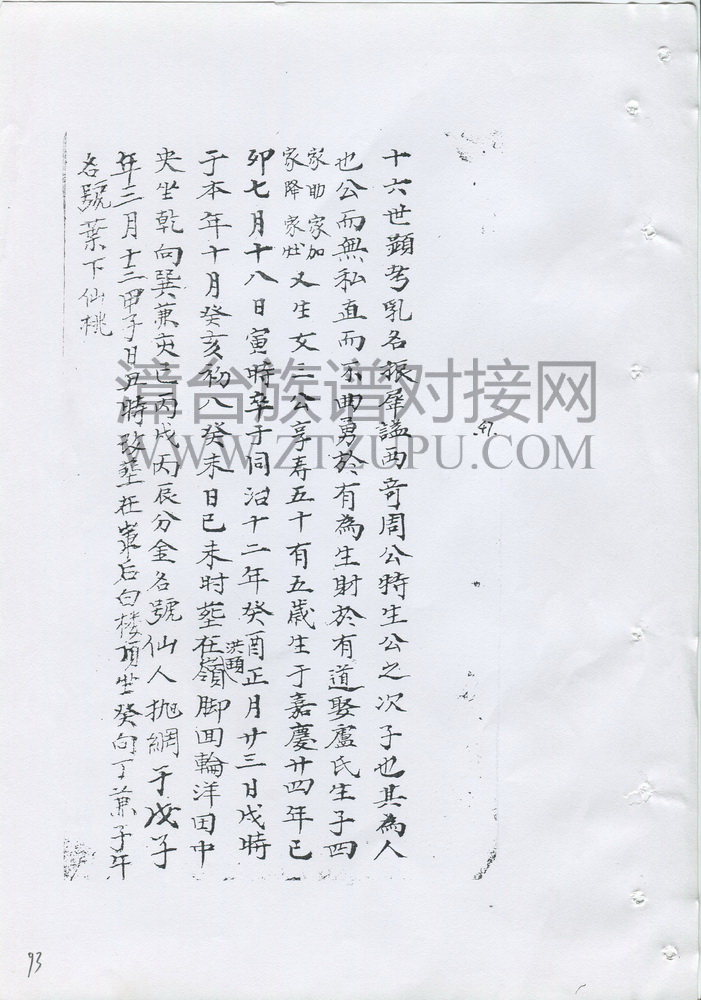 十六世顕考乳名振犀謚西竒周公特生公之次子也其為人
也公而無私直而不曲勇於有為生財於有道娶盧氏生子四
家助家加
家降家壯又生女二公享寿五十有五歲生于嘉慶廿四年己
卯七月十八日寅時卒于同治十二年癸酉正月廿三日戌時
于本年十月癸亥初八癸未日己未时塟在洪頭嶺脚田輪洋田中
央坐乾向巽兼亥巳丙戌丙辰分金名號仙人抛網于戊子
年三月十三甲子日丑時改塟在后白楼頂坐癸向丁兼子午
名號葉下仙桃
47.
93
漳台族谱对接网
WWW.ZTZUPU.COM